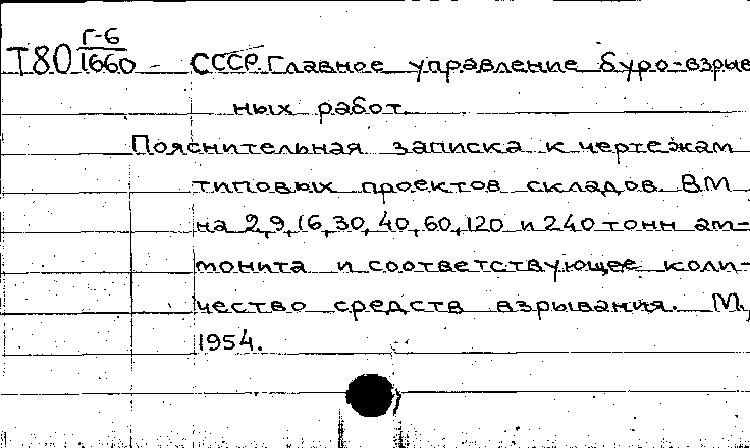 Г-6
Т80 1660 - СССР. Главное управление буро-взрыв
ных работ.
Пояснительная записка к чертежам
типовых проектов складов ВМ
на 2,9,16,30,40,60,120 и 240 тонн ам-
монита и соответствующее коли-
чество средств взрывания. М.,
1954.